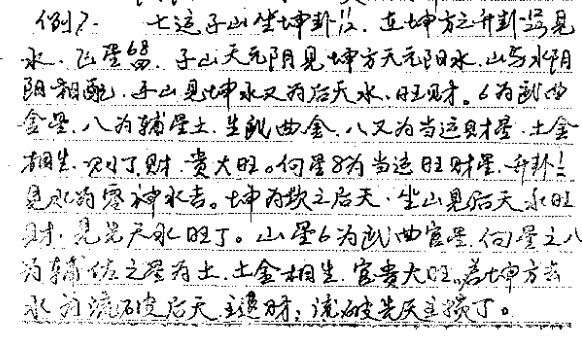 例7. 七运子山坐坤卦1/2. 在坤方之升卦 见
水. 飞星68. 子山天元阴见坤方天元阳水. 山与水阴
阳相配. 子山见坤水又为后天水. 旺财。6为武曲
金星. 八为辅星土. 生武曲金. 八又为当运财星. 土金
相生. 则丁财. 贵大旺。向星8为当运旺财星. 升卦
见水为零神水吉。坤为坎之后天. 坐山见后天水旺
财. 见先天水旺丁。山星6为武曲官星. 向星之八
为辅佐之星为土. 土金相生. 官贵大旺。若坤方去
水为流破后天主退财; 流破先天主损丁。